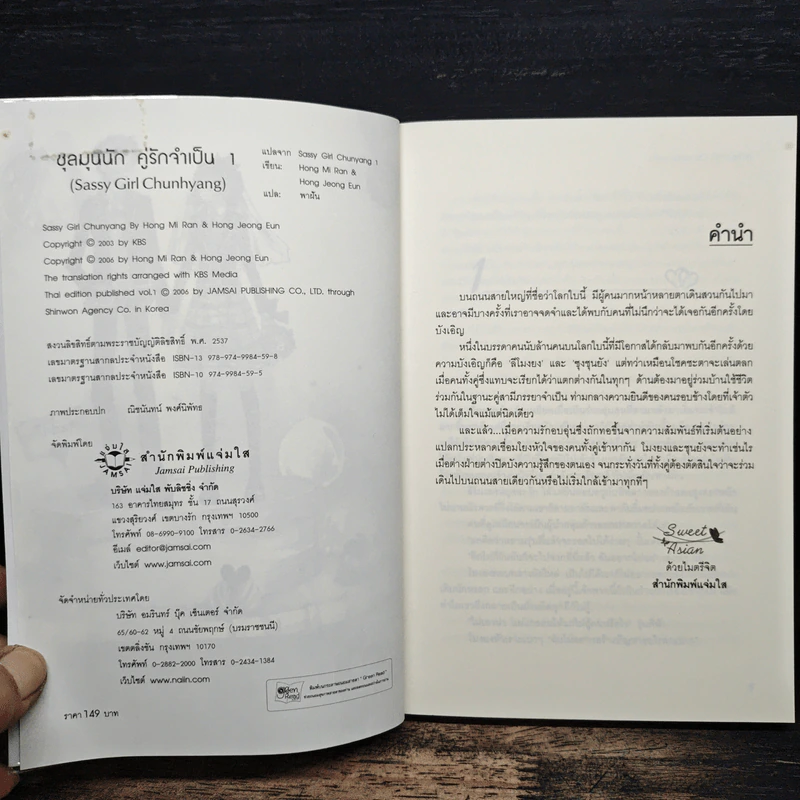 ชุลมุนนัก คู่รักจำเป็น 1
(Sassy Girl Chunhyang)
แปลจาก Sassy Girl Chunyang 1
เขียน: Hong Mi Ran &
Hong Jeong Eun
แปล: พาฝัน
Sassy Girl Chunyang By Hong Mi Ran & Hong Jeong Eun
Copyright © 2003 by KBS
Copyright © 2006 by Hong Mi Ran & Hong Jeong Eun
The translation rights arranged with KBS Media
Thai edition published vol.1 © 2006 by JAMSAI PUBLISHING CO., LTD. through
Shinwon Agency Co. in Korea
สงวนลิขสิทธิ์ตามพระราชบัญญัติลิขสิทธิ์ พ.ศ. 2537
เลขมาตรฐานสากลประจำหนังสือ ISBN-13 978-974-9984-59-8
เลขมาตรฐานสากลประจำหนังสือ ISBN-10 974-9984-59-5
ภาพประกอบปก ณิชนันทน์ พงศ์นิพัทธ
จัดพิมพ์โดย
สำนักพิมพ์แจ่มใส
Jamsai Publishing
บริษัท แจ่มใส พับลิชชิ่ง จำกัด
163 อาคารไทยสมุทร ชั้น 17 ถนนสุรวงศ์
แขวงสุริยวงศ์ เขตบางรัก กรุงเทพฯ 10500
โทรศัพท์ 08-6990-9100 โทรสาร 0-2634-2766
อีเมล์ editor@jamsai.com
เว็บไซต์ www.jamsai.com
จัดจำหน่ายทั่วประเทศโดย
บริษัท อมรินทร์ บุ๊ค เซ็นเตอร์ จำกัด
65/60-62 หมู่ 4 ถนนชัยพฤกษ์ (บรมราชชนนี)
เขตตลิ่งชัน กรุงเทพฯ 10170
โทรศัพท์ 0-2882-2000 โทรสาร 0-2434-1384
เว็บไซต์ www.naiin.com
Green Read
ราคา 149 บาท
คำนำ
บนถนนสายใหญ่ที่ชื่อว่าโลกใบนี้ มีผู้คนมากหน้าหลายตาเดินสวนกันไปมา
และอาจมีบางครั้งที่เราอาจจดจำและได้พบกับคนที่ไม่นึกว่าจะได้เจอกันอีกครั้งโดย
บังเอิญ
หนึ่งในบรรดาคนนับล้านคนบนโลกใบนี้ที่มีโอกาสได้กลับมาพบกันอีกครั้งด้วย
ความบังเอิญก็คือ 'ลีโมงยง' และ 'ซุงชุนยัง' แต่ทว่าเหมือนโชคชะตาจะเล่นตลก
เมื่อคนทั้งคู่ซึ่งแทบจะเรียกได้ว่าแตกต่างกันในทุกๆ ด้านต้องมาอยู่ร่วมบ้านใช้ชีวิต
ร่วมกันในฐานะคู่สามีภรรยาจำเป็น ท่ามกลางความยินดีของคนรอบข้างโดยที่เจ้าตัว
ไม่ได้เต็มใจแม้แต่นิดเดียว
และแล้ว...เมื่อความรักอบอุ่นซึ่งถักทอขึ้นจากความสัมพันธ์ที่เริ่มต้นอย่าง
แปลกประหลาดเชื่อมโยงหัวใจของคนทั้งคู่เข้าหากัน โมงยงและชุนยังจะทำเช่นไร
เมื่อต่างฝ่ายต่างปิดบังความรู้สึกของตนเอง จนกระทั่งวันที่ทั้งคู่ต้องตัดสินใจว่าจะร่วม
เดินไปบนถนนสายเดียวกันหรือไม่เริ่มใกล้เข้ามาทุกทีๆ
Sweet
Asian
ด้วยไมตรีจิต
สำนักพิมพ์แจ่มใส